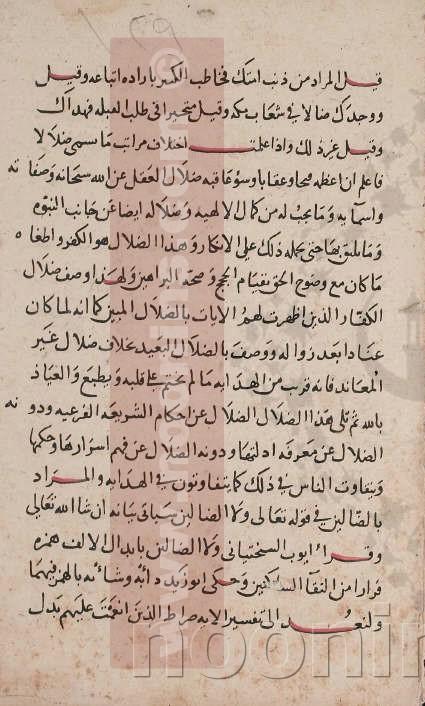 قيل المراد من ذنب امتك فخاطب الكبير باراده اتباعه وقيل
ووجدك ضالا في شعاب مكه وقيل متحيرا في طلب القبله فهداك
وقيل غير ذلك واذا علمت اختلاف مراتب ما يسمى ضلالا
فاعلم ان اعظمه قبحا وعقابا وسوء عاقبه ضلال العقل عن الله سبحانه وصفاته
واسمائه وما يجب له من كمال الالهيه وضلاله ايضا عن جانب النبوه
وما يليق بها حتى يحمله ذلك على الانكار وهذا الضلال هو الكفر واطغاه
ما كان مع وضوح الحق بقيام الحجج وصحه البراهين ولهذا وصف ضلال
الكفار الذين اظهرت لهم الايات بالضلال المبين كما انه لما كان
عنادا بعد زواله ووصف بالضلال البعيد بخلاف ضلال غير
المعاند فانه قرب من الهدايه ما لم يختم على قلبه ويطبع والعياذ
بالله ثم تلي هذا الضلال الضلال عن احكام الشريعه الفرعيه ودونه
الضلال عن معرفه ادلتها ودونه الضلال عن فهم اسرارها وحكمها
ويتفاوت الناس في ذلك كما يتفاوتون في الهدايه والمراد
بالضالين في قوله تعالى ولا الضالين سياتي بيانه ان شا الله تعالى
وقرا ايوب السختياني ولا الضالين بابدال الالف همزه
فرارا من التقآ الساكنين وحكى ابو زيد دأبه وشأبه بالهمز فيهما
ولنعد الى تفسير الايه صراط الذين انعمت عليهم بدل
noonin